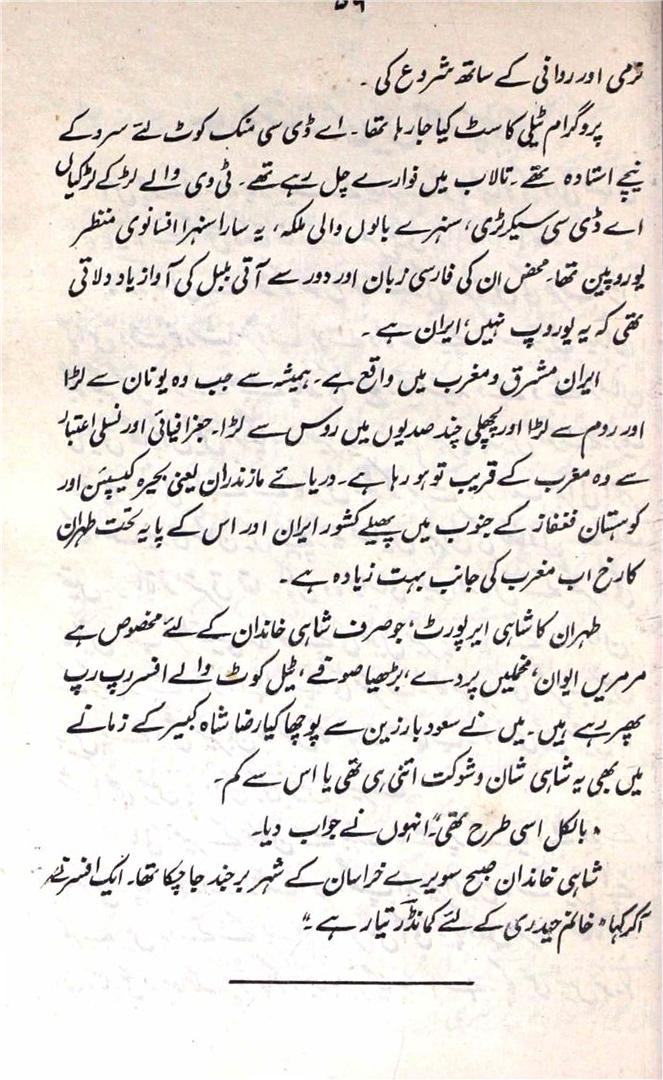 ۵۹
نرمی اور روانی کے ساتھ شروع کی ۔
پروگرام ٹیلی کاسٹ کیا جارہا تھا ۔ اے ڈی سی منک کوٹ لئے سرو کے
نیچے استادہ تھے ۔ تالاب میں فوارے چل رہے تھے ۔ ٹی وی والے لڑکے لڑکیاں
اے ڈی سی سیکرٹری، سنہرے بالوں والی ملکہ، یہ سارا سنہرا افسانوی منظر
یوروپین تھا۔ محض ان کی فارسی زبان اور دور سے آتی بلبل کی آواز یاد دلاتی
تھی کہ یہ یوروپ نہیں، ایران ہے ۔
ایران مشرق و مغرب میں واقع ہے ۔ ہمیشہ سے جب وہ یونان سے لڑا
اور روم سے لڑا اور پچھلی چند صدیوں میں روس سے لڑا ۔ جغرافیائی اور نسلی اعتبار
سے وہ مغرب کے قریب تو ہو رہا ہے ۔ دریائے ماژندران یعنی بحیرہ کیسپئن اور
کوہستان قفقاز کے جنوب میں پھیلے کشور ایران اور اس کے پایہ تخت طہران
کا رخ اب مغرب کی جانب بہت زیادہ ہے ۔
طہران کا شاہی ایر پورٹ، جو صرف شاہی خاندان کے لئے مخصوص ہے
مرمریں ایوان، مخملیں پردے، بڑھیا صوفے، ٹیل کوٹ والے افسر رپ رپ
پھر رہے ہیں ۔ میں نے سعود بارزین سے پوچھا کیا رضا شاہ کبیر کے زمانے
میں بھی یہ شاہی شان و شوکت اتنی ہی تھی یا اس سے کم ۔
" بالکل اسی طرح تھی ۔" انہوں نے جواب دیا ۔
شاہی خاندان صبح سویرے خراسان کے شہر برجند جا چکا تھا ۔ ایک افسر نے
آکر کہا " خانم حیدری کے لئے کمانڈر تیار ہے ۔"